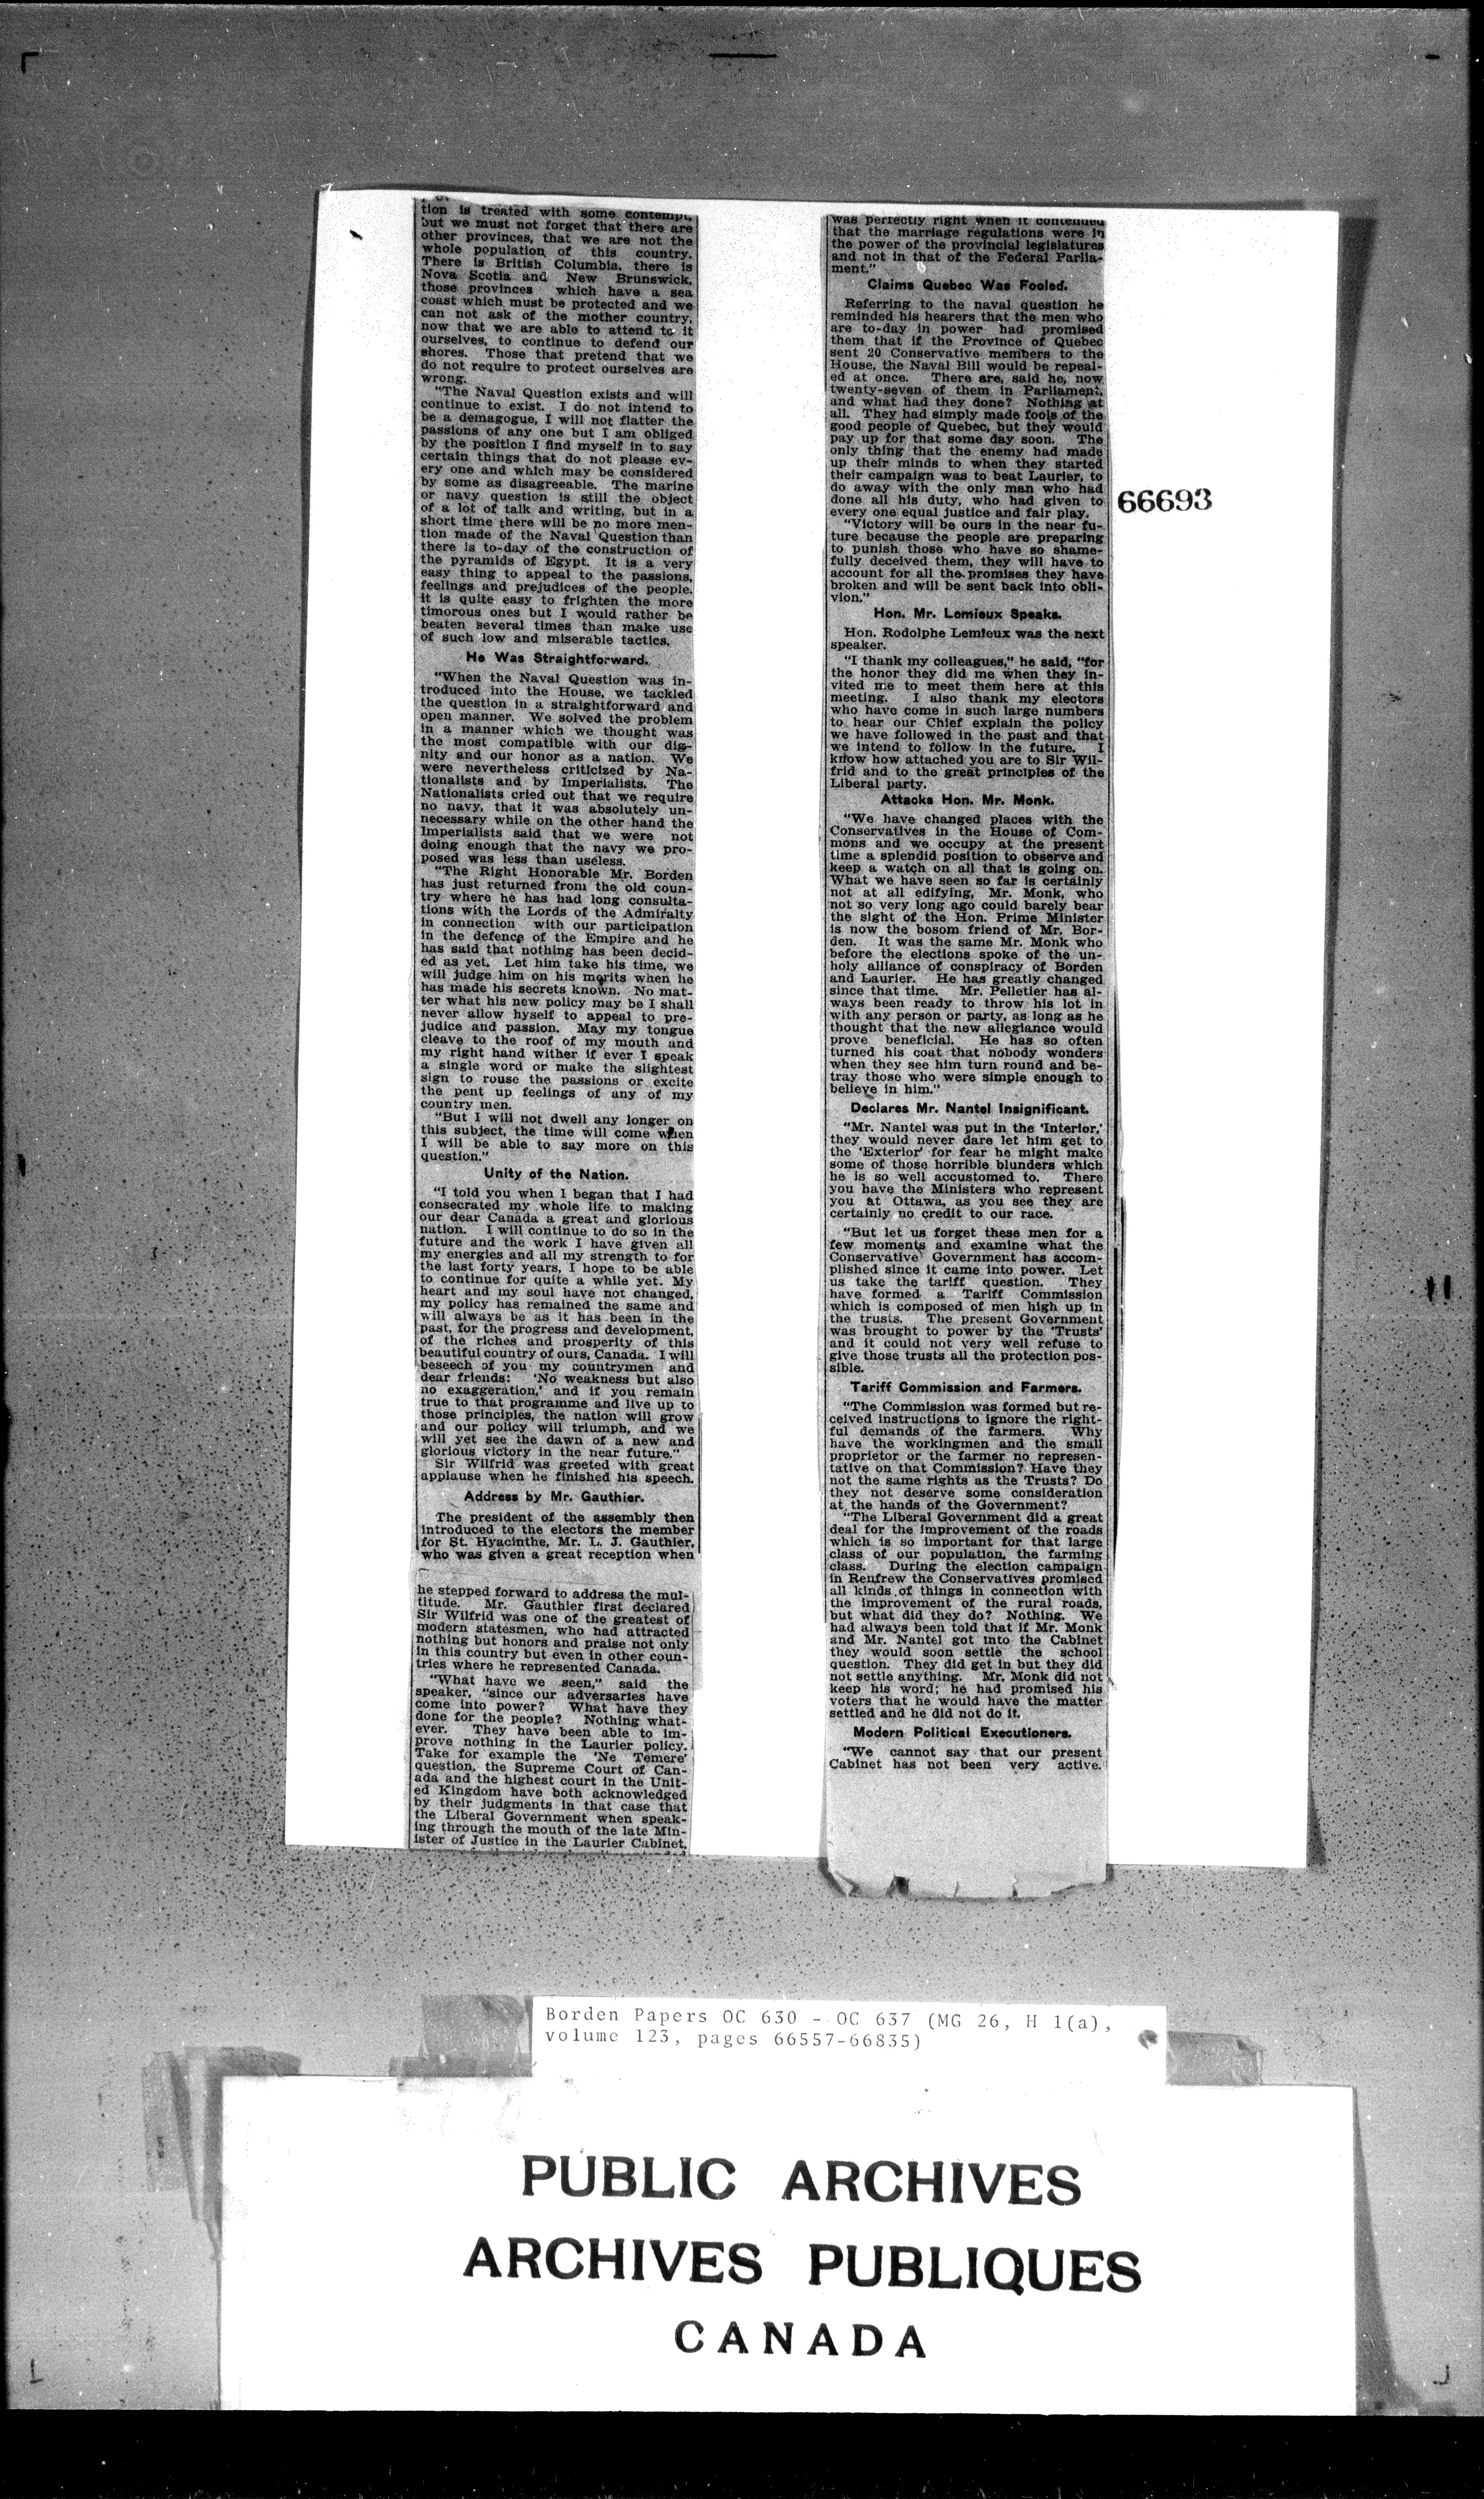 tion is treated with some contempt,
but we must not forget that there are
other provinces, that we are not the
whole population of this country.
There is British Columbia, there is
Nova Scotia and New Brunswick,
those provinces which have a sea
coast which must be protected and we
can not ask of the mother country,
now that we are able to attend to it
ourselves, to continue to defend our
shores. Those that pretend that we
do not require to protect ourselves are
wrong.
"The Naval Question exists and will
continue to exist. I do not intend to
be a demagogue, I will not flatter the
passions of any one but I am obliged
by the position I find myself in to say
certain things that do not please ev-
ery one and which may be considered
by some as disagreeable. The marine
or navy question is still the object
of a lot of talk and writing, but in a
short time there will be no more men-
tion made of the Naval Question than
there is to-day of the construction of
the pyramids of Egypt. It is a very
easy thing to appeal to the passions,
feelings and prejudices of the people.
it is quite easy to frighten the more
timorous ones but I would rather be
beaten several times than make use
of such low and miserable tactics.
He Was Straightforward.
"When the Naval Question was in-
troduced into the House, we tackled
the question in a straightforward and
open manner. We solved the problem
in a manner which we thought was
the most compatible with our dig-
nity and our honor as a nation. We
were nevertheless criticized by Na-
tionalists and by Imperialists. The
Nationalists cried out that we require
no navy, that it was absolutely un-
necessary while on the other hand the
Imperialists said that we were not
doing enough that the navy we pro-
posed was less than useless.
"The Right Honorable Mr. Borden
has just returned from the old coun-
try where he has had long consulta-
tions with the Lords of the Admiralty
in connection with our participation
in the defence of the Empire and he
has said that nothing has been decid-
ed as yet. Let him take his time, we
will judge him on his merits when he
has made his secrets known. No mat-
ter what his new policy may be I shall
never allow hyself to appeal to pre-
judice and passion. May my tongue
cleave to the roof of my mouth and
my right hand wither if ever I speak
a single word or make the slightest
sign to rouse the passions or excite
the pent up feelings of any of my
country men.
"But I will not dwell any longer on
this subject, the time will come when
I will be able to say more on this
question."
Unity of the Nation.
"I told you when I began that I had
consecrated my whole life to making
our dear Canada a great and glorious
nation. I will continue to do so in the
future and the work I have given all
my energies and all my strength to for
the last forty years, I hope to be able
to continue for quite a while yet. My
heart and my soul have not changed,
my policy has remained the same and
will always be as it has been in the
past, for the progress and development,
of the riches and prosperity of this
beautiful country of ours, Canada. I will
beseech of you my countrymen and
dear friends: 'No weakness but also
no exaggeration,' and if you remain
true to that programme and live up to
those principles, the nation will grow
and our policy will triumph, and we
will yet see the dawn of a new and
glorious victory in the near future."
Sir Wilfrid was greeted with great
applause when he finished his speech.
Address by Mr. Gauthier.
The president of the assembly then
introduced to the electors the member
for St. Hyacinthe, Mr. L. J. Gauthier,
who was given a great reception when
he stepped forward to address the mul-
titude. Mr. Gauthier first declared
Sir Wilfrid was one of the greatest of
modern statesmen, who had attracted
nothing but honors and praise not only
in this country but even in other coun-
tries where he represented Canada.
"What have we seen," said the
speaker, "since our adversaries have
come into power? What have they
done for the people? Nothing what-
ever. They have been able to im-
prove nothing in the Laurier policy.
Take for example the 'Ne Temere'
question, the Supreme Court of Can-
ada and the highest court in the Unit-
ed Kingdom have both acknowledged
by their judgments in that case that
the Liberal Government when speak-
ing through the mouth of the late Min-
ister of Justice in the Laurier Cabinet,
was perfectly right when it contended
that the marriage regulations were in
the power of the provincial legislatures
and not in that of the Federal Parlia-
ment."
Claims Quebec Was Fooled.
Referring to the naval question he
reminded his hearers that the men who
are to-day in power had promised
them that if the Province of Quebec
sent 20 Conservative members to the
House, the Naval Bill would be repeal-
ed at once. There are, said he, now
twenty-seven of them in Parliament,
and what had they done? Nothing at
all. They had simply made fools of the
good people of Quebec, but they would
pay up for that some day soon. The
only thing that the enemy had made
up their minds to when they started
their campaign was to beat Laurier, to
do away with the only man who had
done all his duty, who had given to
every one equal justice and fair play.
"Victory will be ours in the near fu-
ture because the people are preparing
to punish those who have so shame-
fully deceived them, they will have to
account for all the promises they have
broken and will be sent back into obli-
vion."
Hon. Mr. Lemieux Speaks.
Hon. Rodolphe Lemieux was the next
speaker.
"I thank my colleagues," he said, "for
the honor they did me when they in-
vited me to meet them here at this
meeting. I also thank my electors
who have come in such large numbers
to hear our Chief explain the policy
we have followed in the past and that
we intend to follow in the future. I
know how attached you are to Sir Wil-
frid and to the great principles of the
Liberal party.
Attacks Hon. Mr. Monk.
"We have changed places with the
Conservatives in the House of Com-
mons and we occupy at the present
time a splendid position to observe and
keep a watch on all that is going on.
What we have seen so far is certainly
not at all edifying, Mr. Monk, who
not so very long ago could barely bear
the sight of the Hon. Prime Minister
is now the bosom friend of Mr. Bor-
den. It was the same Mr. Monk who
before the elections spoke of the un-
holy alliance of conspiracy of Borden
and Laurier. He has greatly changed
since that time. Mr. Pelletier has al-
ways been ready to throw his lot in
with any person or party, as long as he
thought that the new allegiance would
prove beneficial. He has so often
turned his coat that nobody wonders
when they see him turn round and be-
tray those who were simple enough to
believe in him."
Declares Mr. Nantel Insignificant.
"Mr. Nantel was put in the 'Interior,'
they would never dare let him get to
the 'Exterior' for fear he might make
some of those horrible blunders which
he is so well accustomed to. There
you have the Ministers who represent
you at Ottawa, as you see they are
certainly no credit to our race.
"But let us forget these men for a
few moments and examine what the
Conservative Government has accom-
plished since it came into power. Let
us take the tariff question. They
have formed a Tariff Commission
which is composed of men high up in
the trusts. The present Government
was brought to power by the 'Trusts'
and it could not very well refuse to
give those trusts all the protection pos-
sible.
Tariff Commission and Farmers.
"The Commission was formed but re-
ceived instructions to ignore the right-
ful demands of the farmers. Why
have the workingmen and the small
proprietor or the farmer no represen-
tative on that Commission? Have they
not the same rights as the Trusts? Do
they not deserve some consideration
at the hands of the Government?
"The Liberal Government did a great
deal for the improvement of the roads
which is so important for that large
class of our population, the farming
class. During the election campaign
in Renfrew the Conservatives promised
all kinds of things in connection with
the improvement of the rural roads,
but what did they do? Nothing. We
had always been told that if Mr. Monk
and Mr. Nantel got into the Cabinet
they would soon settle the school
question. They did get in but they did
not settle anything. Mr. Monk did not
keep his word; he had promised his
voters that he would have the matter
settled and he did not do it.
Modern Political Executioners.
"We cannot say that our present
Cabinet has not been very active.
66693
Borden Papers OC 630 - OC 637 (MG 26, H 1(a),
volume 123, pages 66557-66835)
PUBLIC ARCHIVES
ARCHIVES PUBLIQUES
CANADA